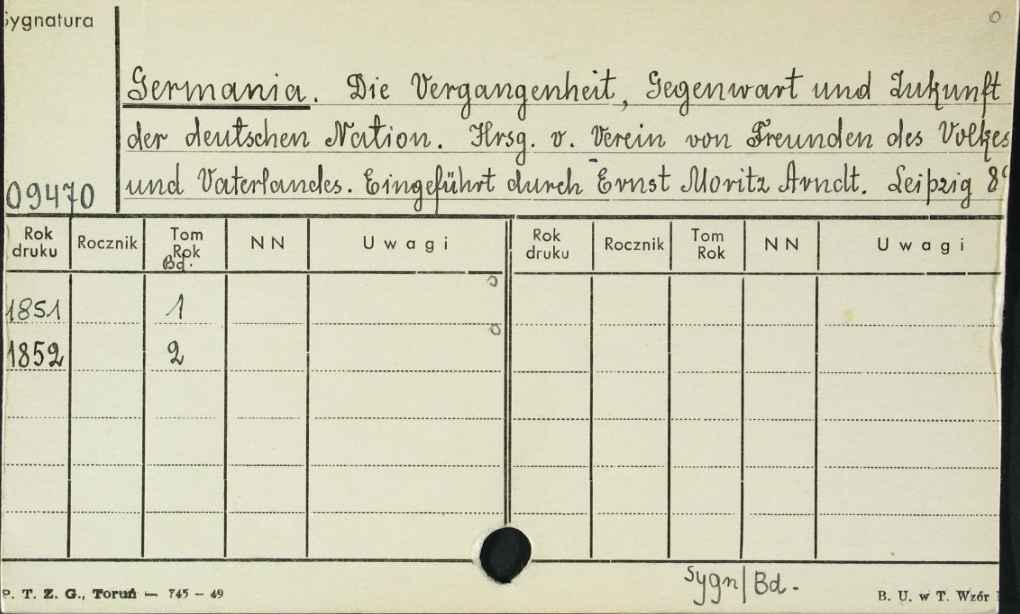 Sygnatura
Germania. Die Vergangenheit, Gegenwart und Zukunft
der deutschen Nation. Hrsg. v. Verein von Freunden des Volkes
und Vaterlandes. Eingeführt durch Ernst Moritz Arndt. Leipzig 8°
09470
Rok druku Rocznik Tom Rok Bd. NN Uwagi Rok druku Rocznik Tom Rok NN Uwagi
1851 1
1852 2
Sygn/Bd.
P. T. Z. G., Toruń — 745 — 49 B. U. w T. Wzór